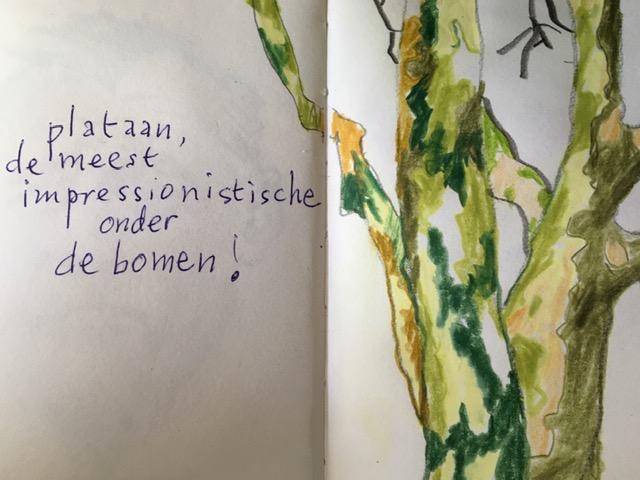 plataan,
de meest
impressionistische
onder
de bomen!